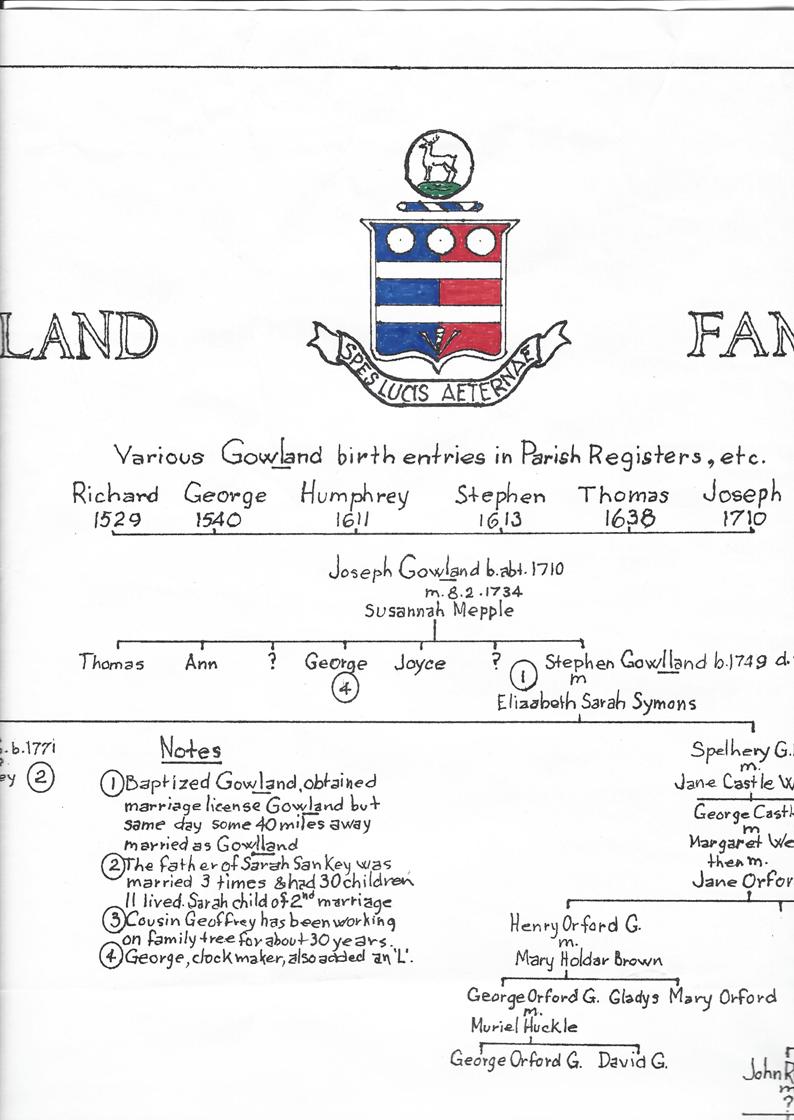 LAND
FAN
SPES LUCIS AETERNAE
Various Gowland birth entries in Parish Registers, etc.
Richard George Humphrey Stephen Thomas Joseph
1529 1540 1611 1613 1638 1710
Joseph Gowland b.abt. 1710
m. 8.2.1734
Susannah Mepple
Thomas Ann ? George Joyce ? Stephen Gowlland b.1749 d.
4 1 m
Elizabeth Sarah Symons
G.b.1771
?
ey 2
Notes
1 Baptized Gowland, obtained
marriage license Gowland but
same day some 40 miles away
married as Gowlland
2 The father of Sarah SanKey was
married 3 times & had 30 children
11 lived. Sarah child of 2nd marriage
3 Cousin Geoffrey has been working
on family tree for about 30 years.
4 George, clockmaker, also added an 'L'.
Spelhery G.
m.
Jane Castle W
George Castl
m
Margaret We
then m.
Jane Orfor
Henry Orford G.
m.
Mary Holdar Brown
George Orford G. Gladys Mary Orford
m.
Muriel Huckle
George Orford G. David G.
John R
m
?